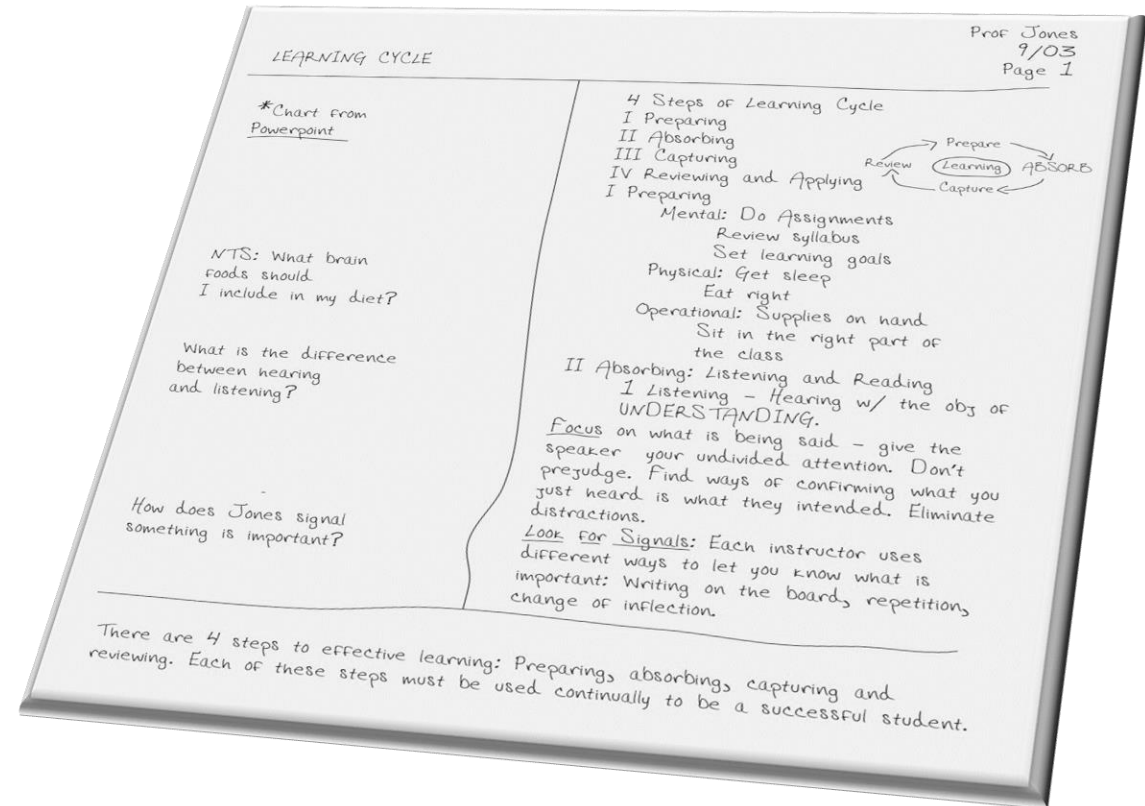 LEARNING CYCLE
Prof Jones
9/03
Page 1
*Chart from
Powerpoint
NTS: What brain
foods should
I include in my diet?
What is the difference
between hearing
and listening?
How does Jones signal
something is important?
4 Steps of Learning Cycle
I Preparing
II Absorbing
III Capturing
IV Reviewing and Applying
Prepare
Review Learning ABSORB
Capture
I Preparing
Mental: Do Assignments
Review syllabus
Set learning goals
Physical: Get sleep
Eat right
Operational: Supplies on hand
Sit in the right part of
the class
II Absorbing: Listening and Reading
1 Listening – Hearing w/ the obj of
UNDERSTANDING.
Focus on what is being said – give the
speaker your undivided attention. Don't
prejudge. Find ways of confirming what you
just heard is what they intended. Eliminate
distractions.
Look for Signals: Each instructor uses
different ways to let you know what is
important: Writing on the board, repetition,
change of inflection.
There are 4 steps to effective learning: Preparing, absorbing, capturing and
reviewing. Each of these steps must be used continually to be a successful student.